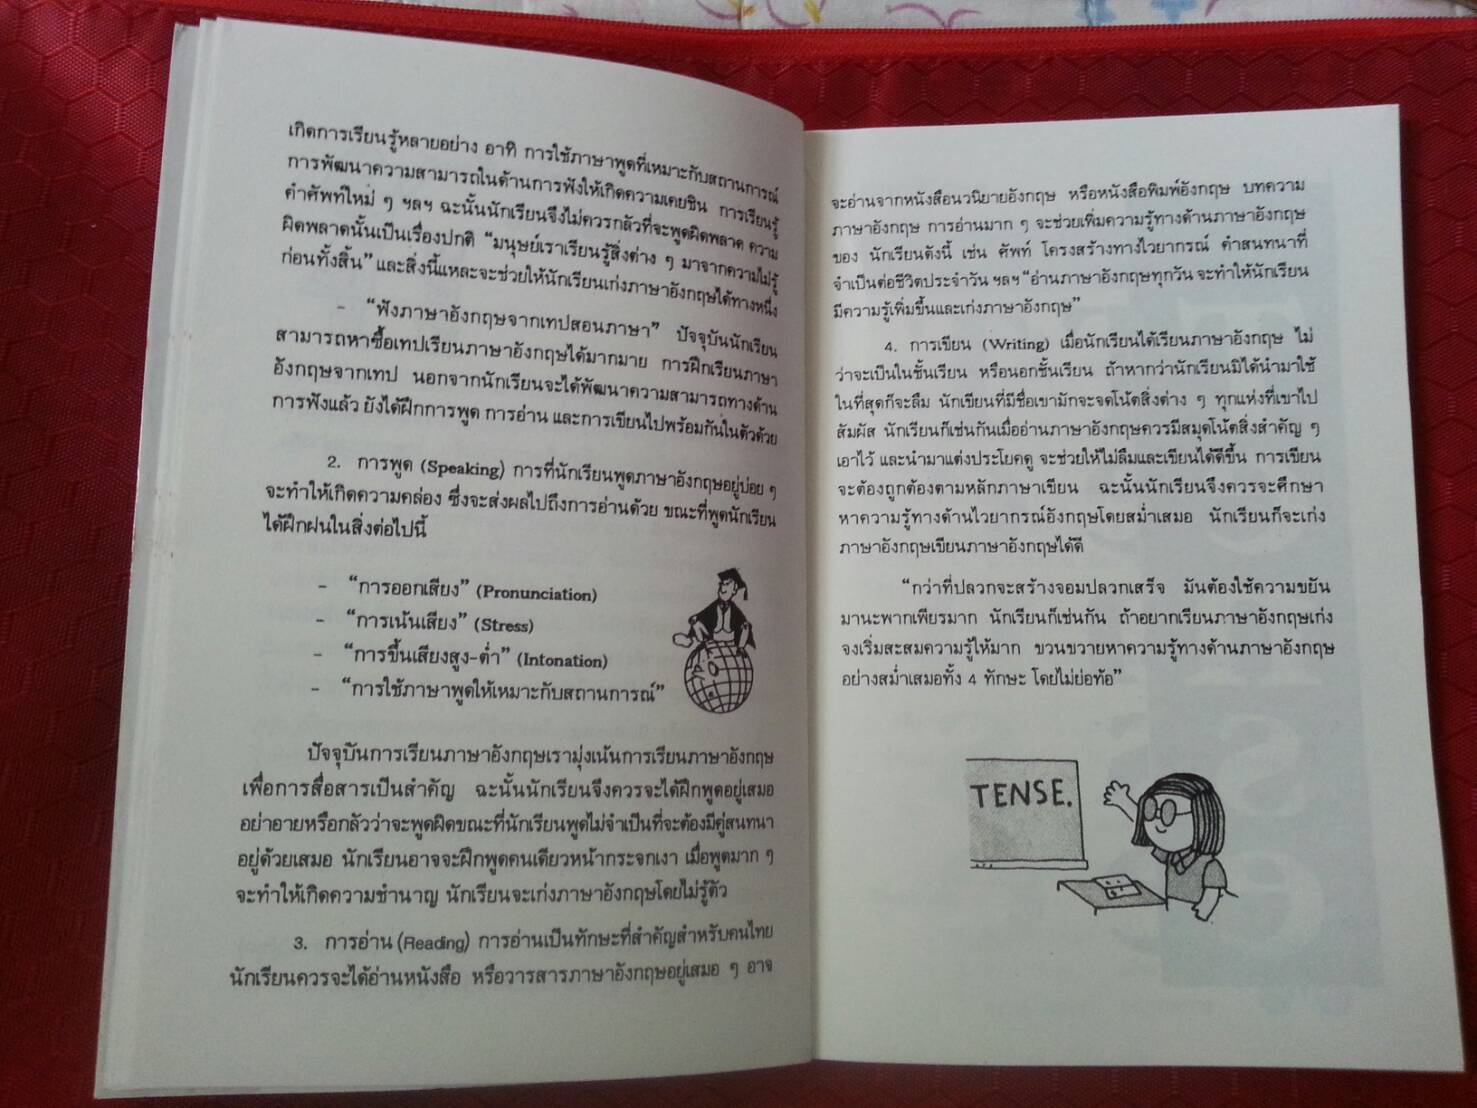 เกิดการเรียนรู้หลายอย่าง อาทิ การใช้ภาษาพูดที่เหมาะกับสถานการณ์
การพัฒนาความสามารถในด้านการฟังให้เกิดความเคยชิน การเรียนรู้
คำศัพท์ใหม่ ๆ ฯลฯ ฉะนั้นนักเรียนจึงไม่ควรกลัวที่จะพูดผิดพลาด ความ
ผิดพลาดนั้นเป็นเรื่องปกติ “มนุษย์เราเรียนรู้สิ่งต่าง ๆ มาจากความไม่รู้
ก่อนทั้งสิ้น” และสิ่งนี้แหละจะช่วยให้นักเรียนเก่งภาษาอังกฤษได้ทางหนึ่ง
- “ฟังภาษาอังกฤษจากเทปสอนภาษา” ปัจจุบันนักเรียน
สามารถหาซื้อเทปเรียนภาษาอังกฤษได้มากมาย การฝึกเรียนภาษา
อังกฤษจากเทป นอกจากนักเรียนจะได้พัฒนาความสามารถทางด้าน
การฟังแล้ว ยังได้ฝึกการพูด การอ่าน และการเขียนไปพร้อมกันในตัวด้วย
2. การพูด (Speaking) การที่นักเรียนพูดภาษาอังกฤษอยู่บ่อย ๆ
จะทำให้เกิดความคล่อง ซึ่งจะส่งผลไปถึงการอ่านด้วย ขณะที่พูดนักเรียน
ได้ฝึกฝนในสิ่งต่อไปนี้
- “การออกเสียง” (Pronunciation)
- “การเน้นเสียง” (Stress)
- “การขึ้นเสียงสูง-ต่ำ” (Intonation)
- “การใช้ภาษาพูดให้เหมาะกับสถานการณ์”
ปัจจุบันการเรียนภาษาอังกฤษเรามุ่งเน้นการเรียนภาษาอังกฤษ
เพื่อการสื่อสารเป็นสำคัญ ฉะนั้นนักเรียนจึงควรจะได้ฝึกพูดอยู่เสมอ
อย่าอายหรือกลัวว่าจะพูดผิดขณะที่นักเรียนพูดไม่จำเป็นที่จะต้องมีคู่สนทนา
อยู่ด้วยเสมอ นักเรียนอาจจะฝึกพูดคนเดียวหน้ากระจกเงา เมื่อพูดมาก ๆ
จะทำให้เกิดความชำนาญ นักเรียนจะเก่งภาษาอังกฤษโดยไม่รู้ตัว
3. การอ่าน (Reading) การอ่านเป็นทักษะที่สำคัญสำหรับคนไทย
นักเรียนควรจะได้อ่านหนังสือ หรือวารสารภาษาอังกฤษอยู่เสมอ ๆ อาจ
จะอ่านจากหนังสือนวนิยายอังกฤษ หรือหนังสือพิมพ์อังกฤษ บทความ
ภาษาอังกฤษ การอ่านมาก ๆ จะช่วยเพิ่มความรู้ทางด้านภาษาอังกฤษ
ของ นักเรียนดังนี้ เช่น ศัพท์ โครงสร้างทางไวยากรณ์ คำสนทนาที่
จำเป็นต่อชีวิตประจำวัน ฯลฯ “อ่านภาษาอังกฤษทุกวัน จะทำให้นักเรียน
มีความรู้เพิ่มขึ้นและเก่งภาษาอังกฤษ”
4. การเขียน (Writing) เมื่อนักเรียนได้เรียนภาษาอังกฤษ ไม่
ว่าจะเป็นในชั้นเรียน หรือนอกชั้นเรียน ถ้าหากว่านักเรียนมิได้นำมาใช้
ในที่สุดก็จะลืม นักเขียนที่มีชื่อเขามักจะจดโน้ตสิ่งต่าง ๆ ทุกแห่งที่เขาไป
สัมผัส นักเรียนก็เช่นกันเมื่ออ่านภาษาอังกฤษควรมีสมุดโน้ตสิ่งสำคัญ ๆ
เอาไว้ และนำมาแต่งประโยคดู จะช่วยให้ไม่ลืมและเขียนได้ดีขึ้น การเขียน
จะต้องถูกต้องตามหลักภาษาเขียน ฉะนั้นนักเรียนจึงควรจะศึกษา
หาความรู้ทางด้านไวยากรณ์อังกฤษโดยสม่ำเสมอ นักเรียนก็จะเก่ง
ภาษาอังกฤษเขียนภาษาอังกฤษได้ดี
“กว่าที่ปลวกจะสร้างจอมปลวกเสร็จ มันต้องใช้ความขยัน
มานะพากเพียรมาก นักเรียนก็เช่นกัน ถ้าอยากเรียนภาษาอังกฤษเก่ง
จงเริ่มสะสมความรู้ให้มาก ขวนขวายหาความรู้ทางด้านภาษาอังกฤษ
อย่างสม่ำเสมอทั้ง 4 ทักษะ โดยไม่ย่อท้อ”
TENSE.